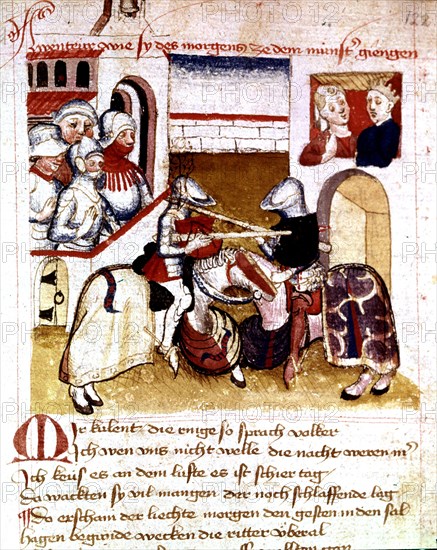 Awenteur wie sy des morgens ze dem münst' giengen
Mir külent die ringe so sprach volker
Ich wen vns nicht welle die nacht weren m'
Ich keüs es an dem lufte es ist schier tag
Da wackten sy vil mangen der noch schlaffende lag
Do erschain der liechte morgen den gesten in den sal
hagen begunde wecken die ritter überal